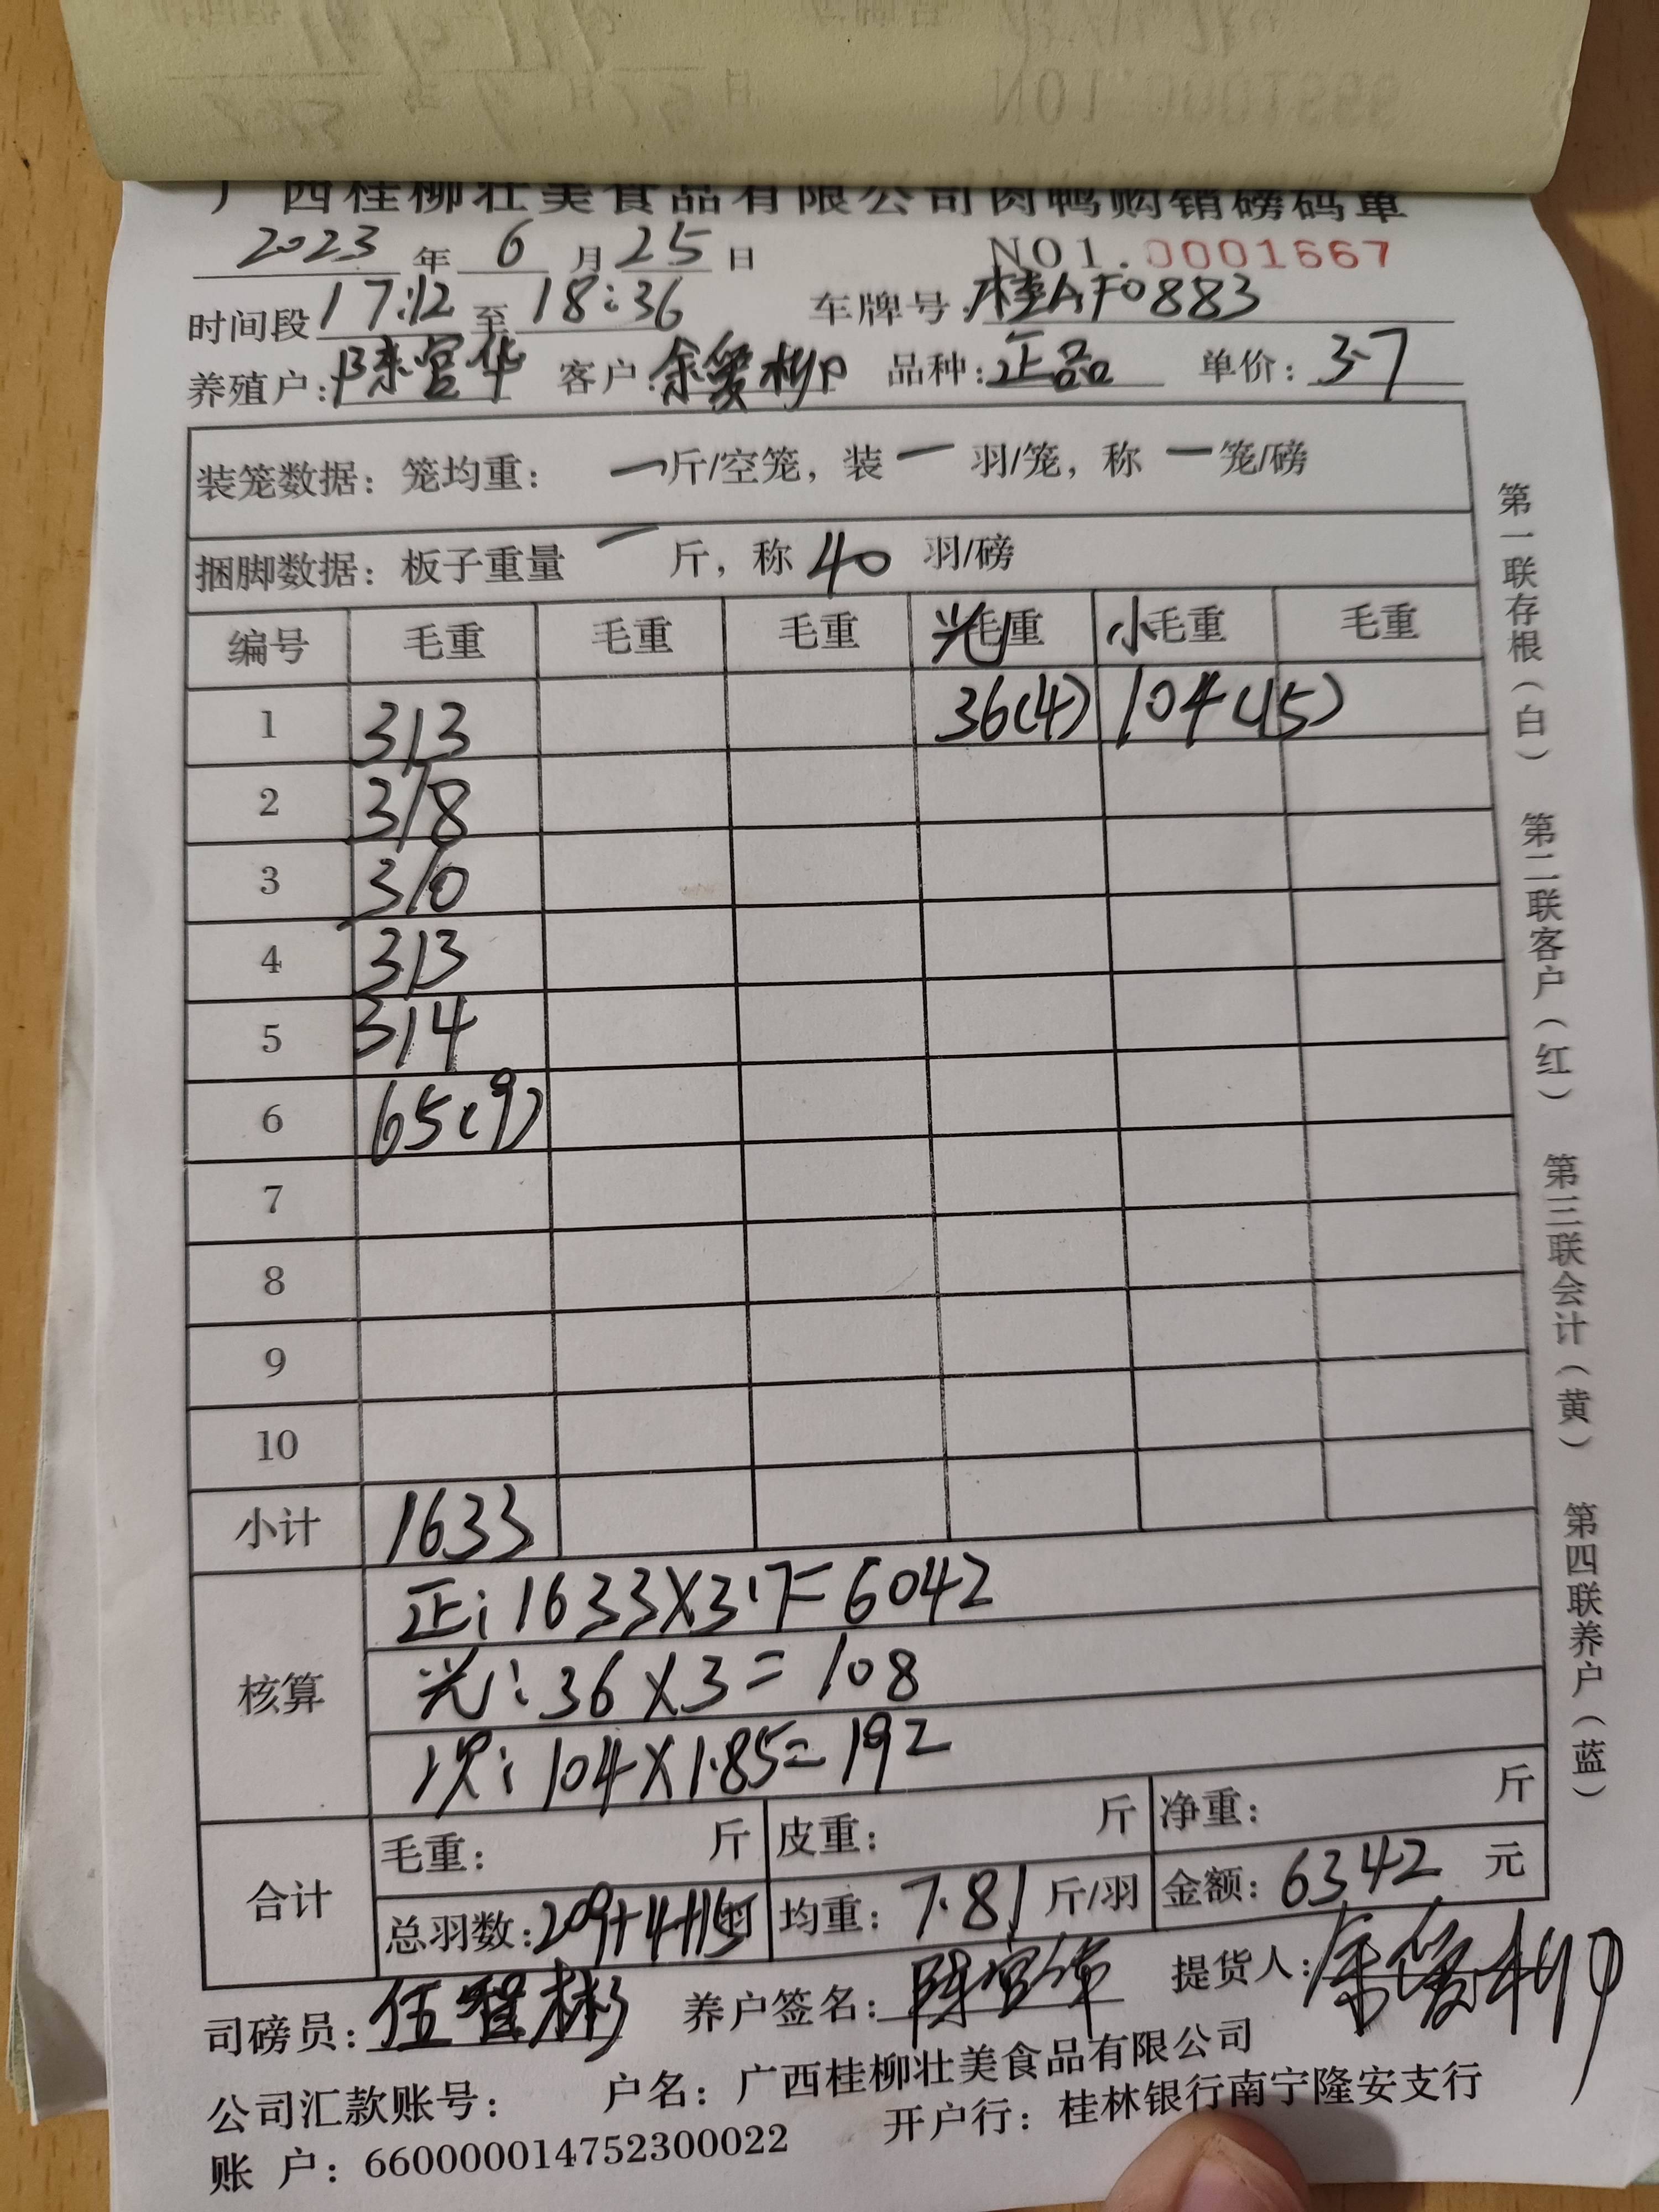 广西桂柳壮美食品有限公司肉鸭购销磅码单
2023年6月25日 NO1.0001667
时间段17:12至18:36 车牌号:桂AF0883
养殖户:陈宫华 客户:余爱柳 品种:正品 单价:3.7
装笼数据: 笼均重: 一斤/空笼, 装一羽/笼, 称一笼/磅
捆脚数据: 板子重量一斤, 称40羽/磅
编号 毛重 毛重 毛重 光毛重 小毛重 毛重
1 313 36(4) 104(15)
2 318
3 310
4 313
5 314
6 65(9)
7
8
9
10
小计 1633
核算
正: 1633X3.7=6042
光: 36X3=108
次: 104X1.85=192
合计
毛重: 斤 皮重: 斤 净重: 斤
总羽数:209+4+15羽 均重:7.81斤/羽 金额:6342元
司磅员: 养户签名:陈宫华 提货人:余爱柳
公司汇款账号: 户名: 广西桂柳壮美食品有限公司
账 户: 660000014752300022 开户行: 桂林银行南宁隆安支行
第一联存根(白) 第二联客户(红) 第三联会计(黄) 第四联养户(蓝)